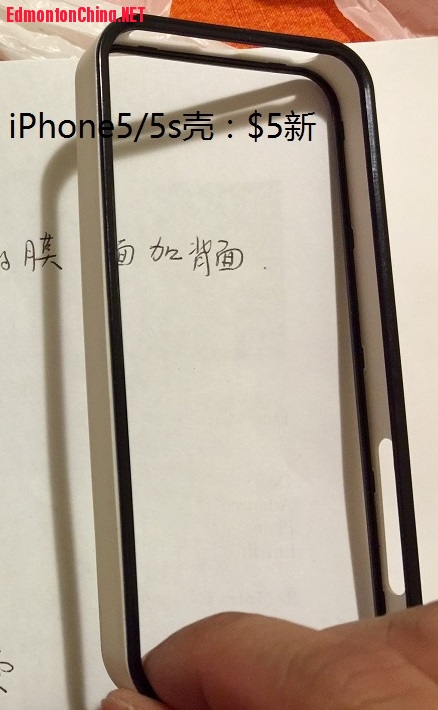 EdmontonChina.NET
iPhone5/5s壳：$5新
膜 面 加背面.